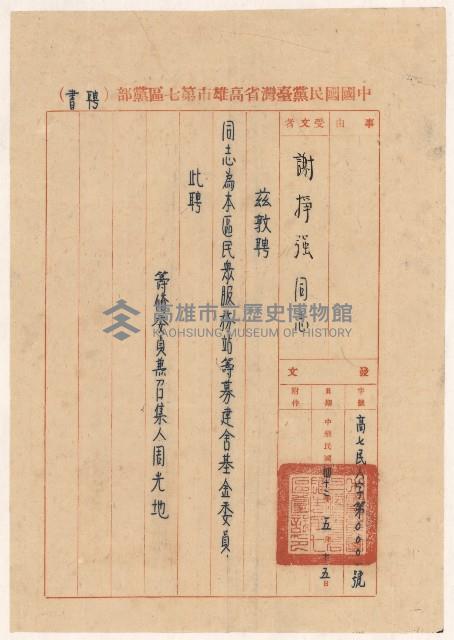 中國國民黨臺灣省高雄市第七區黨部(聘書)
事由
受文者
謝掙強同志
發文
字號
高七民人字第0001號
日期
中華民國四十二年五月十五日
附件
茲敦聘
同志為本區民眾服務站筹募建舍基金委員
此聘
筹備委員兼召集人周光地
高雄市立歷史博物館
KAOHSIUNG MUSEUM OF HISTORY